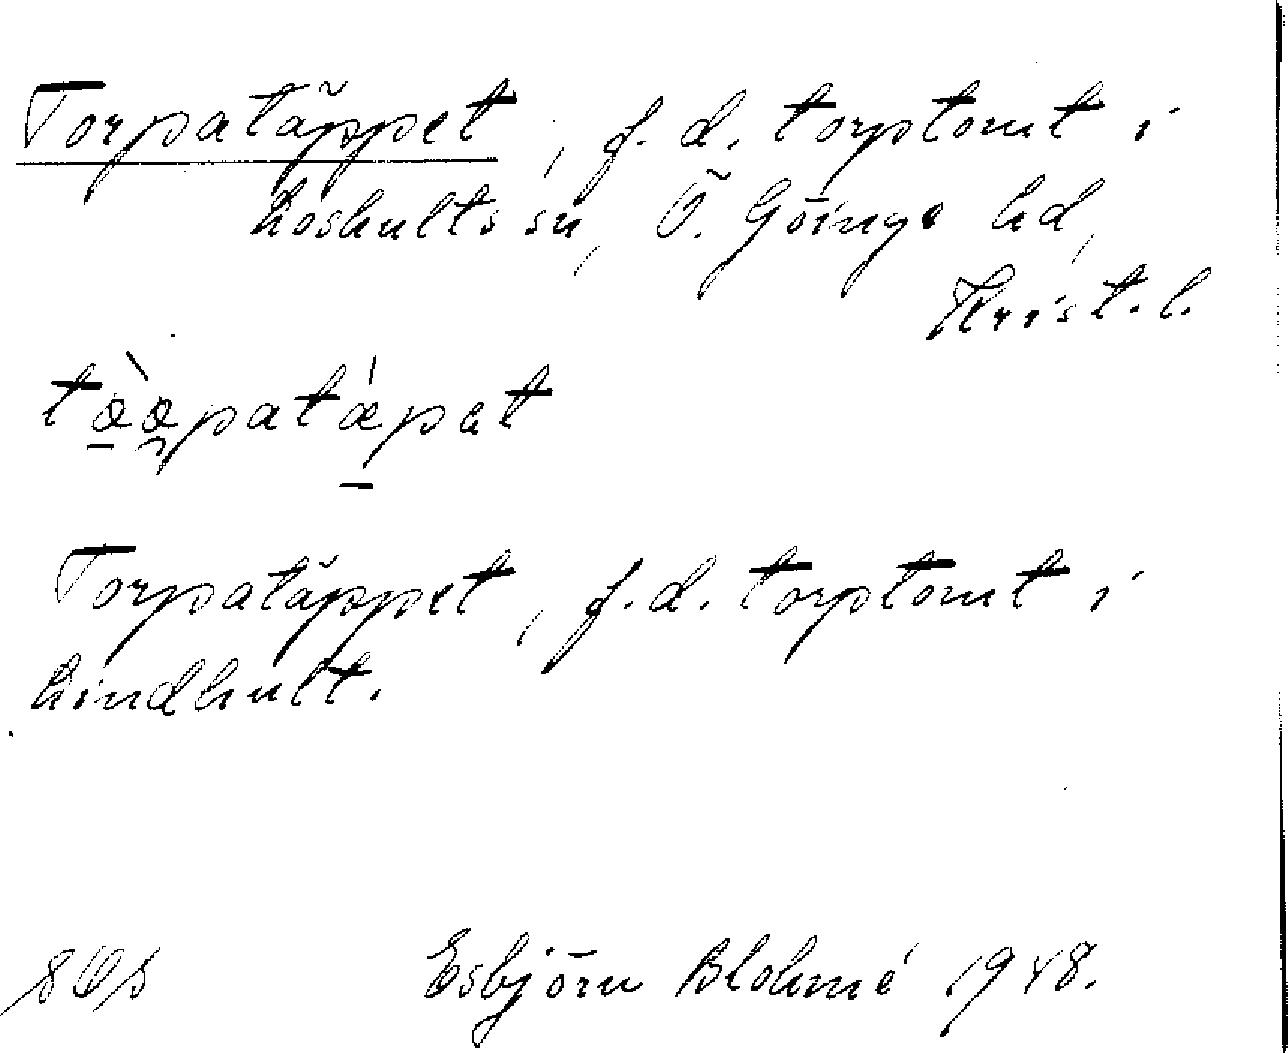 Torpatäppet, f.d. torptomt i
Loshults sn, Ö. Göinge hd,
Krist. l.
Torpatäppet, f.d. torptomt i
Lindhult.
Esbjörn Blohmé 1948.